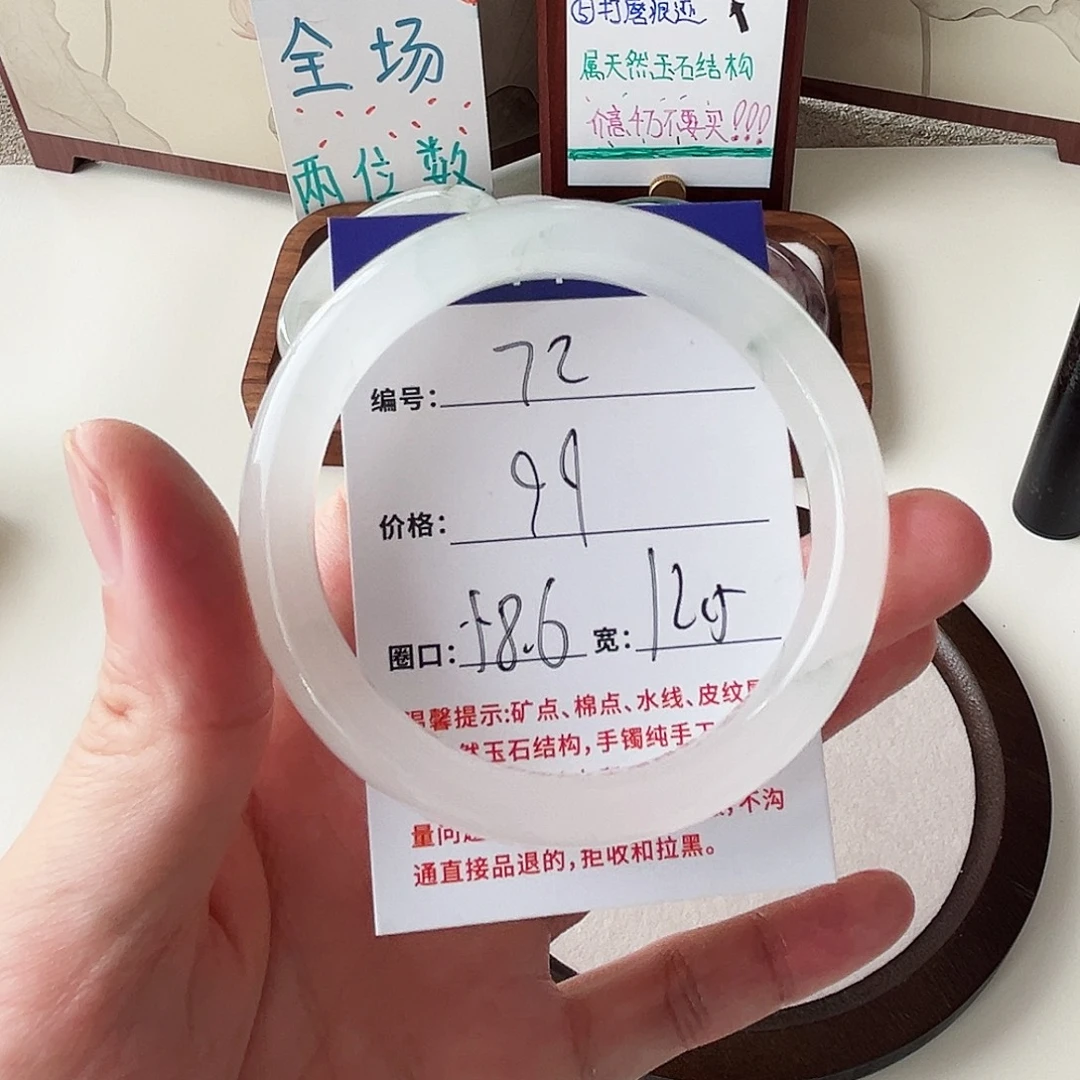 全场
两位数
⑤打磨痕迹
属天然玉石结构
介意、勿不要买!!!
编号: 72
价格: 99
圈口: 58.6 宽: 12.5
温馨提示:矿点、棉点、水线、皮纹
然玉石结构,手镯纯手工
量问
,不沟
通直接品退的,拒收和拉黑。